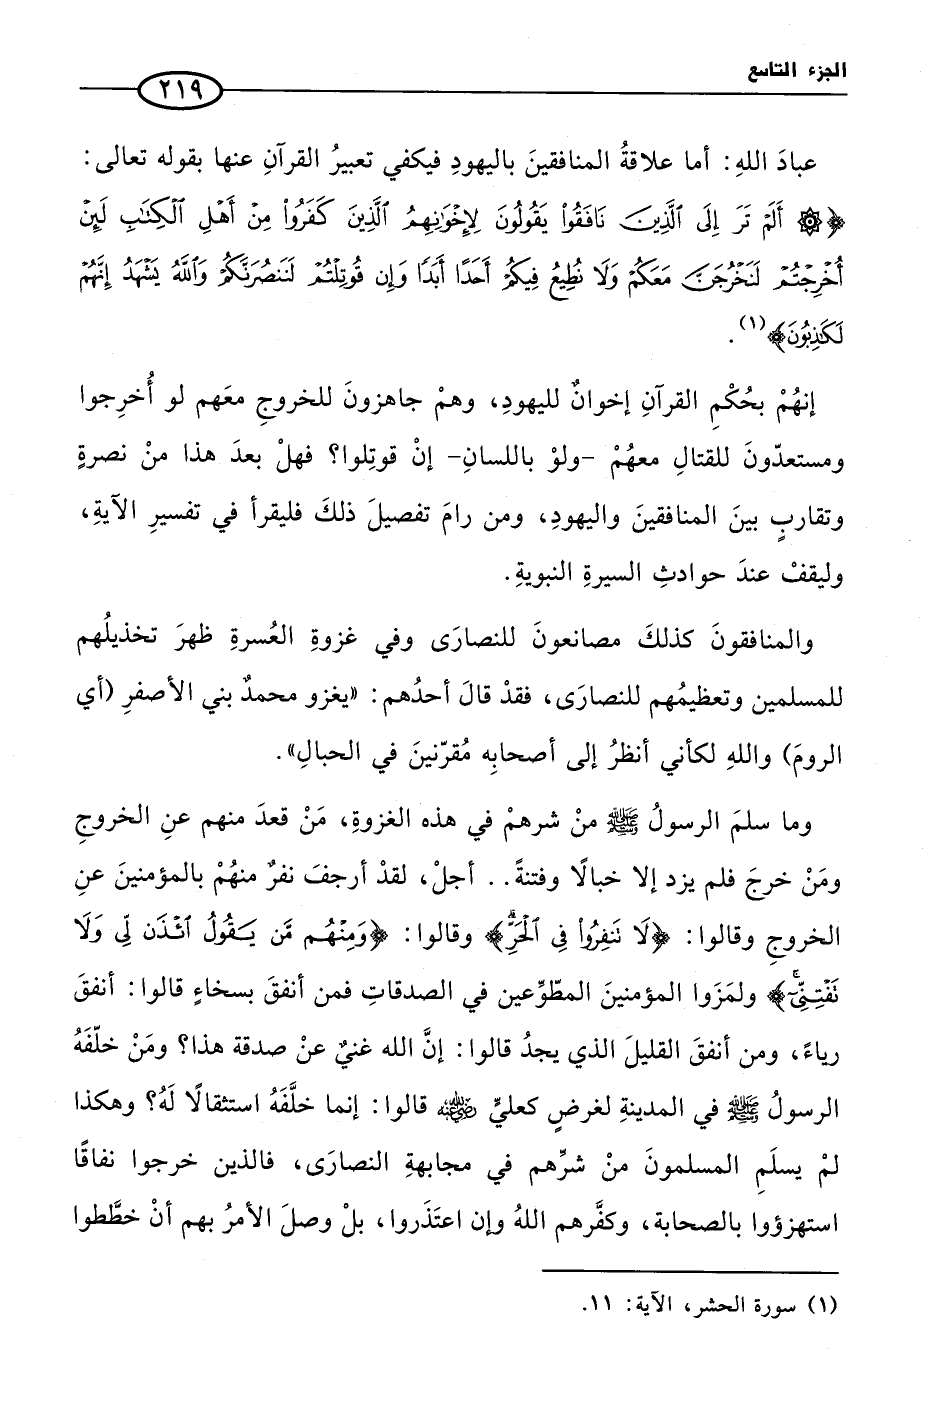 الجزء التاسع
٢١٩
عبادَ اللهِ: أما علاقةُ المنافقينَ باليهودِ فيكفي تعبيرُ القرآنِ عنها بقوله تعالى:
﴿۞ أَلَمْ تَرَ إِلَى ٱلَّذِينَ نَافَقُوا۟ يَقُولُونَ لِإِخْوَٰنِهِمُ ٱلَّذِينَ كَفَرُوا۟ مِنْ أَهْلِ ٱلْكِتَٰبِ لَئِنْ
أُخْرِجْتُمْ لَنَخْرُجَنَّ مَعَكُمْ وَلَا نُطِيعُ فِيكُمْ أَحَدًا أَبَدًا وَإِن قُوتِلْتُمْ لَنَنصُرَنَّكُمْ وَٱللَّهُ يَشْهَدُ إِنَّهُمْ
لَكَٰذِبُونَ﴾(١).
إنهُمْ بحُكْمِ القرآنِ إخوانٌ لليهودِ، وهمْ جاهزونَ للخروجِ معَهم لو أُخرِجوا
ومستعدّونَ للقتالِ معهُمْ -ولوْ باللسانِ- إنْ قوتِلوا؟ فهلْ بعدَ هذا منْ نصرةٍ
وتقاربٍ بينَ المنافقينَ واليهودِ، ومن رامَ تفصيلَ ذلكَ فليقرأ في تفسيرِ الآيةِ،
وليقفْ عندَ حوادثِ السيرةِ النبويةِ.
والمنافقونَ كذلكَ مصانعونَ للنصارَى وفي غزوةِ العُسرةِ ظهرَ تخذيلُهم
للمسلمين وتعظيمُهم للنصارَى، فقدْ قالَ أحدُهم: «يغزو محمدٌ بني الأصفرِ (أي
الرومَ) واللهِ لكأني أنظرُ إلى أصحابِه مُقرّنينَ في الحبالِ».
وما سلمَ الرسولُ ﷺ منْ شرهمْ في هذه الغزوةِ، مَنْ قعدَ منهم عنِ الخروجِ
ومَنْ خرجَ فلم يزد إلا خبالًا وفتنةً.. أجلْ، لقدْ أرجفَ نفرٌ منهُمْ بالمؤمنينَ عنِ
الخروجِ وقالوا: ﴿لَا تَنفِرُوا۟ فِى ٱلْحَرِّ ۗ﴾ وقالوا: ﴿وَمِنْهُم مَّن يَقُولُ ٱئْذَن لِّى وَلَا
تَفْتِنِّىٓ ۚ﴾ ولمَزَوا المؤمنينَ المطّوِّعين في الصدقاتِ فمن أنفقَ بسخاءٍ قالوا: أنفقَ
رياءً، ومن أنفقَ القليلَ الذي يجدُ قالوا: إنَّ الله غنيٌ عنْ صدقة هذا؟ ومَنْ خلّفَهُ
الرسولُ ﷺ في المدينةِ لغرضٍ كعليٍّ رضي الله عنه قالوا: إنما خلَّفَهُ استثقالًا لَهُ؟ وهكذا
لمْ يسلَمِ المسلمونَ منْ شرِّهم في مجابهةِ النصارَى، فالذين خرجوا نفاقًا
استهزؤوا بالصحابة، وكفَّرهم اللهُ وإن اعتَذَروا، بلْ وصلَ الأمرُ بهم أنْ خطَّطوا
(١) سورة الحشر، الآية: ١١.